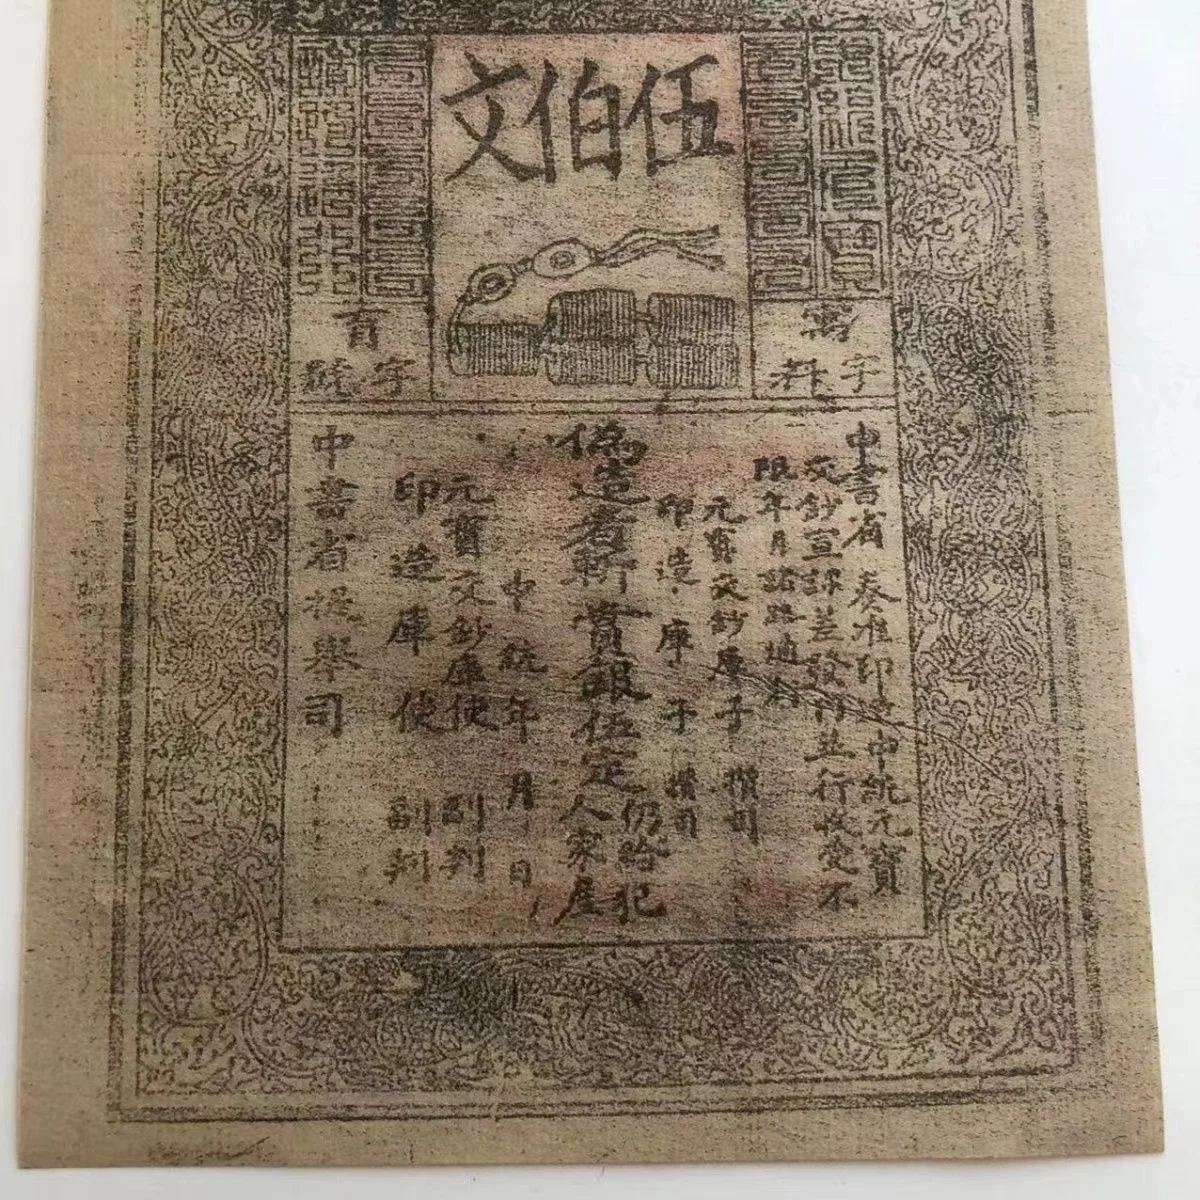 伍伯文
字料
育
字號
中書省奏准印造中統元寶
交鈔宣課差發內並行收受不
限年月諸路通行
元寶交鈔庫子 攢司
印造庫子 攢司
偽造者斬賞銀伍定仍給犯
人家産
中統年 月 日
元寶交鈔庫使 副判
印造庫使 副判
中書省提舉司